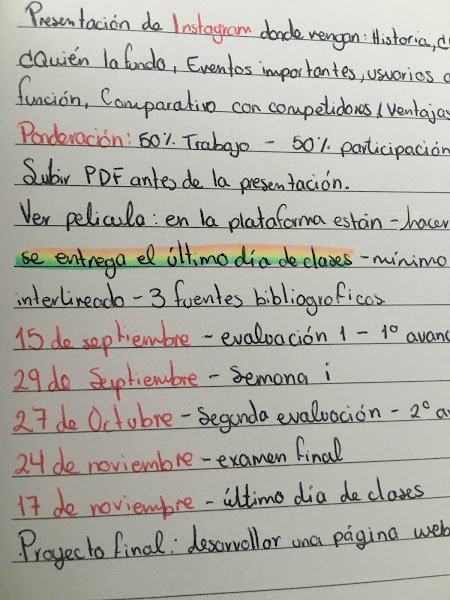 Presentación de Instagram donde vengan: Historia,
¿Quién la fundo, Eventos importantes, usuarios
función, Comparativo con competidores, Ventajas
Ponderación: 50% Trabajo - 50% participación
Subir PDF antes de la presentación.
Ver pelicula: en la plataforma están - hacer
se entrega el último día de clases - mínimo
interlineado - 3 fuentes bibliograficas
15 de septiembre - evaluación 1 - 1° avanc
29 de Septiembre - Semana i
27 de Octubre - Segunda evaluación - 2° av
24 de noviembre - examen final
17 de noviembre - último día de clases
Proyecto final: desarrollar una página web